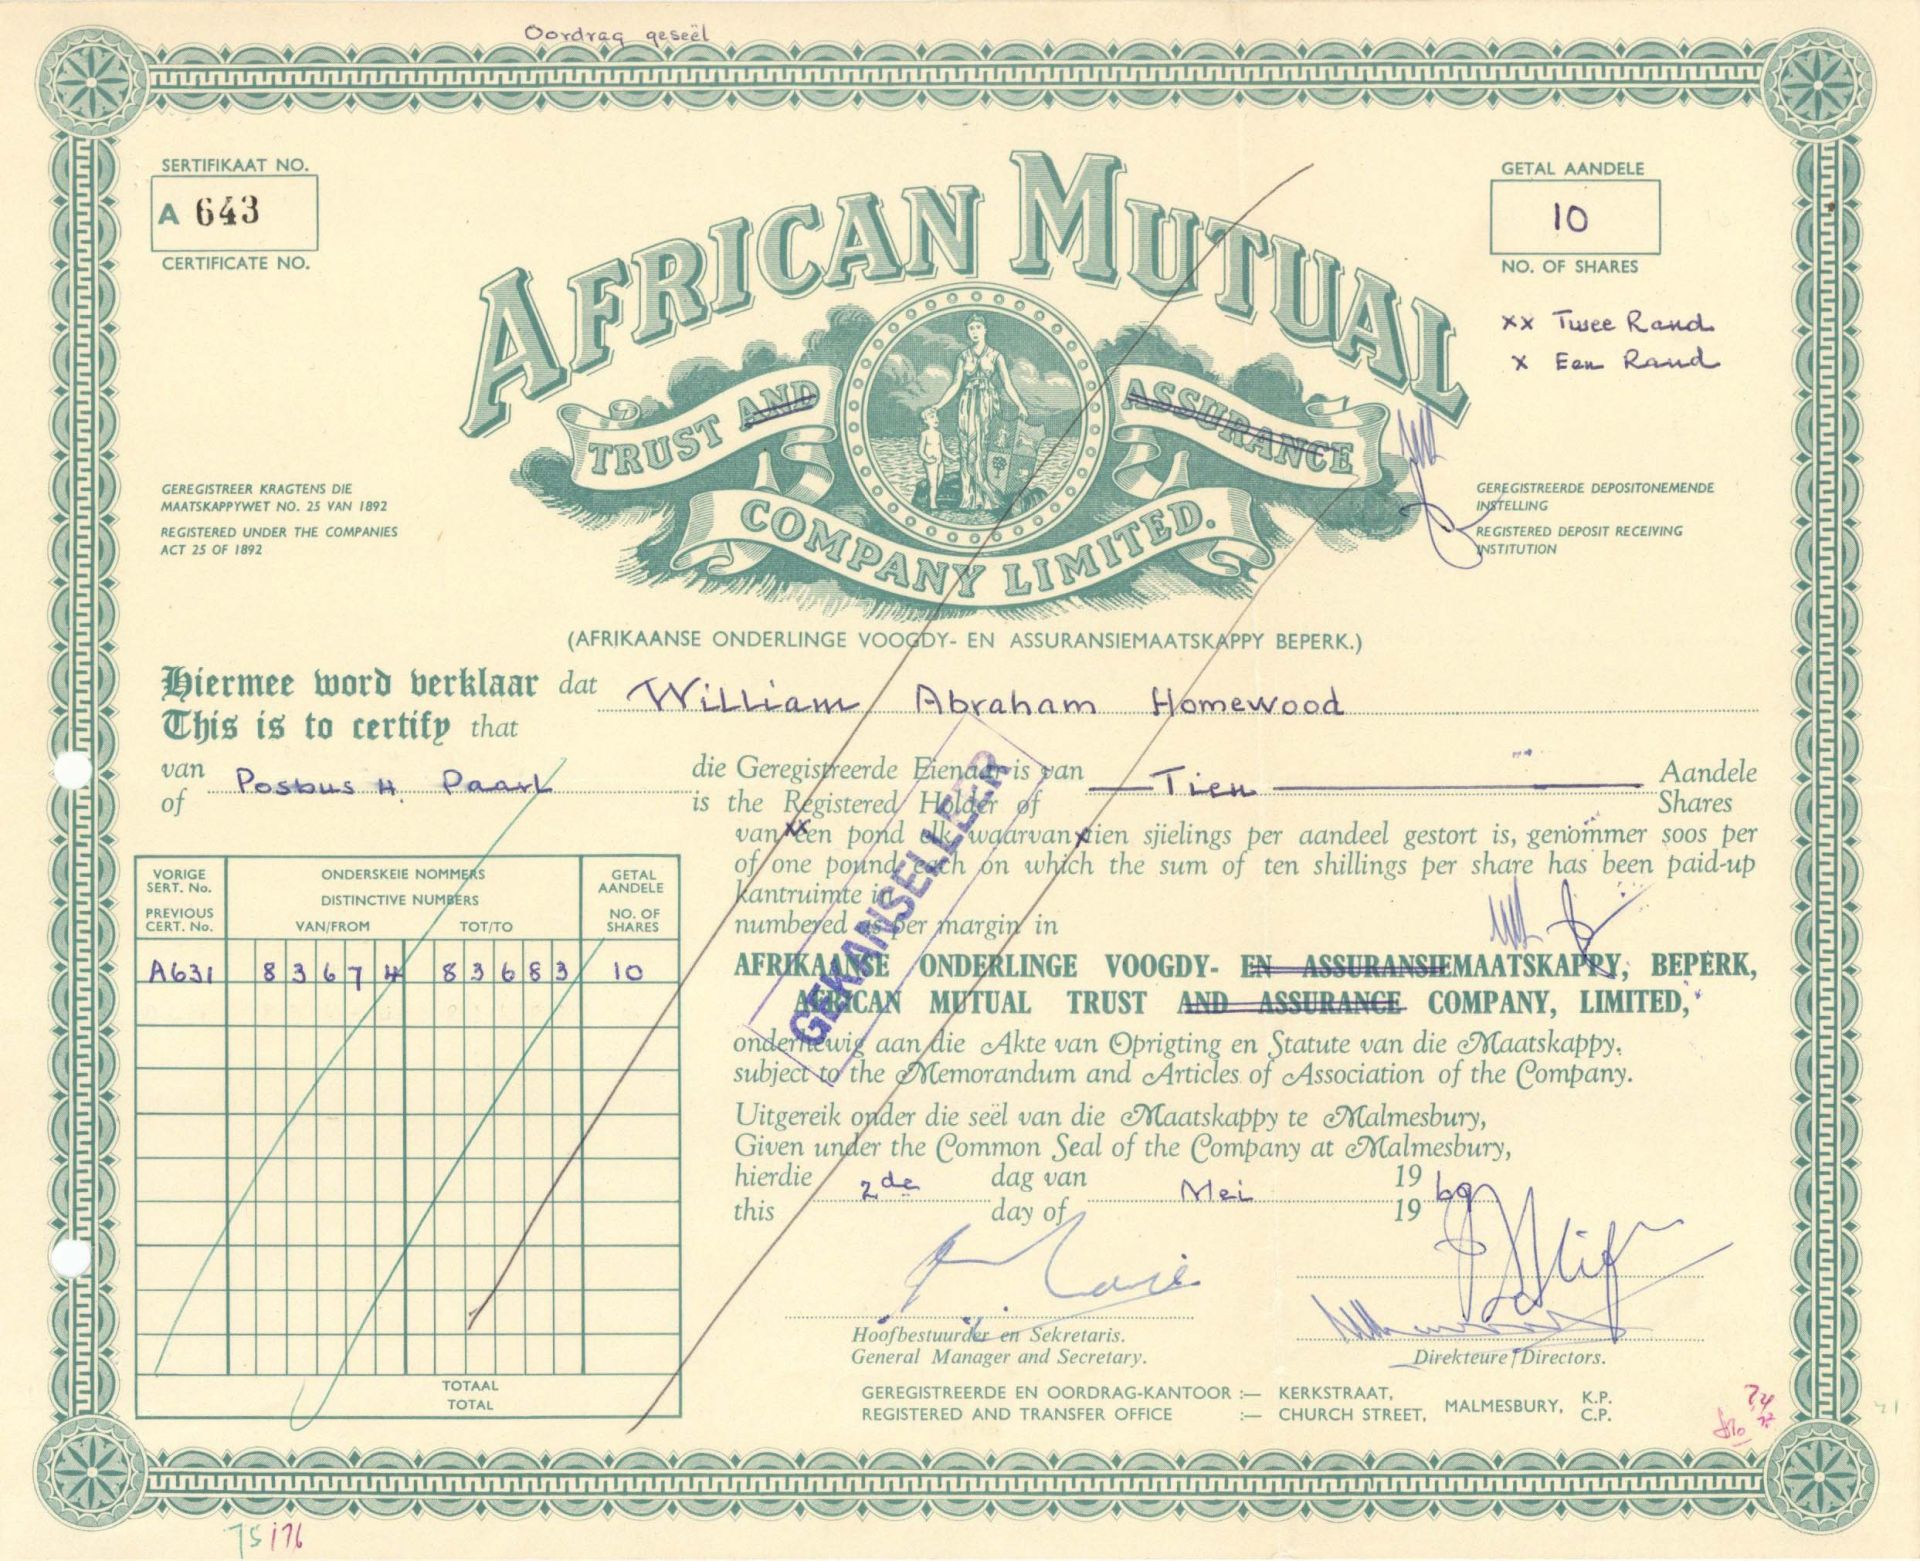 Oordrag geseël
SERTIFIKAAT NO.
A 643
CERTIFICATE NO.
GETAL AANDELE
10
NO. OF SHARES
xx Twee Rand
x Een Rand
AFRICAN MUTUAL
TRUST AND ASSURANCE
COMPANY LIMITED.
GEREGISTREER KRAGTENS DIE
MAATSKAPPYWET NO. 25 VAN 1892
REGISTERED UNDER THE COMPANIES
ACT 25 OF 1892
GEREGISTREERDE DEPOSITONEMENDE
INSTELLING
REGISTERED DEPOSIT RECEIVING
INSTITUTION
(AFRIKAANSE ONDERLINGE VOOGDY- EN ASSURANSIEMAATSKAPPY BEPERK.)
Hiermee word verklaar dat William Abraham Homewood
This is to certify that
van Posbus H. Paarl die Geregistreerde Eienaar is van Tien Aandele
of is the Registered Holder of Shares
van xx een pond elk waarvan x tien sjielings per aandeel gestort is, genommer soos per
of one pound each on which the sum of ten shillings per share has been paid-up
kantruimte in
numbered as per margin in
AFRIKAANSE ONDERLINGE VOOGDY- EN ASSURANSIEMAATSKAPPY, BEPERK,
AFRICAN MUTUAL TRUST AND ASSURANCE COMPANY, LIMITED,
onderhewig aan die Akte van Oprigting en Statute van die Maatskappy.
subject to the Memorandum and Articles of Association of the Company.
Uitgereik onder die seël van die Maatskappy te Malmesbury,
Given under the Common Seal of the Company at Malmesbury,
hierdie 2de dag van Mei 19 69
this day of 19
GEKANSELLEER
VORIGE SERT. No.
PREVIOUS CERT. No.
ONDERSKEIE NOMMERS
DISTINCTIVE NUMBERS
VAN/FROM TOT/TO
GETAL AANDELE
NO. OF SHARES
A631 83674 83683 10
TOTAAL
TOTAL
Hoofbestuurder en Sekretaris.
General Manager and Secretary.
Direkteure/Directors.
GEREGISTREERDE EN OORDRAG-KANTOOR :— KERKSTRAAT, MALMESBURY, K.P.
REGISTERED AND TRANSFER OFFICE :— CHURCH STREET, C.P.
75/76